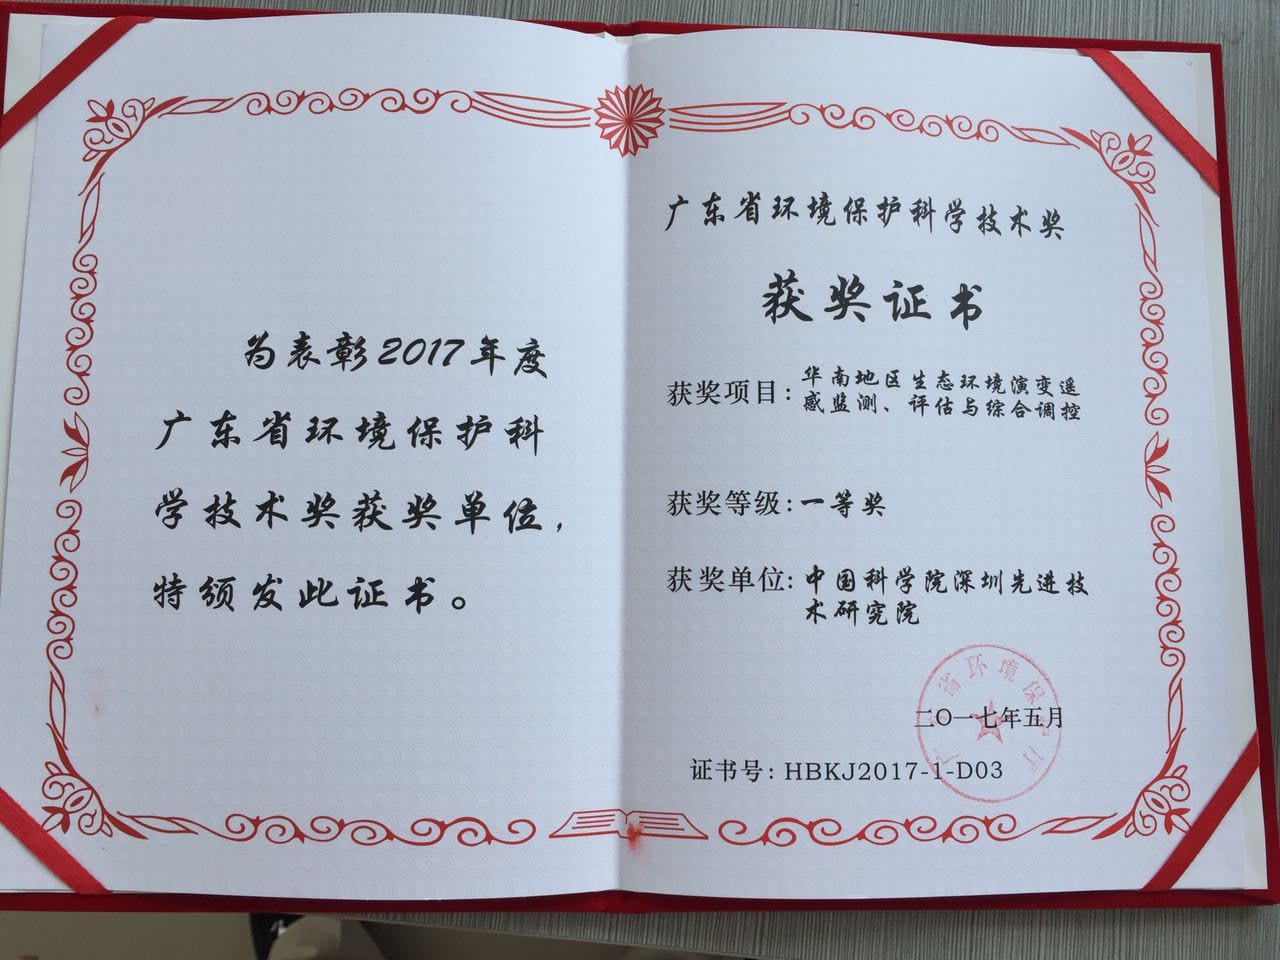 为表彰2017年度
广东省环境保护科
学技术奖获奖单位，
特颁发此证书。
广东省环境保护科学技术奖
获奖证书
获奖项目：华南地区生态环境演变遥
感监测、评估与综合调控
获奖等级：一等奖
获奖单位：中国科学院深圳先进技
术研究院
广东省环境保护厅
二〇一七年五月
证书号：HBKJ2017-1-D03